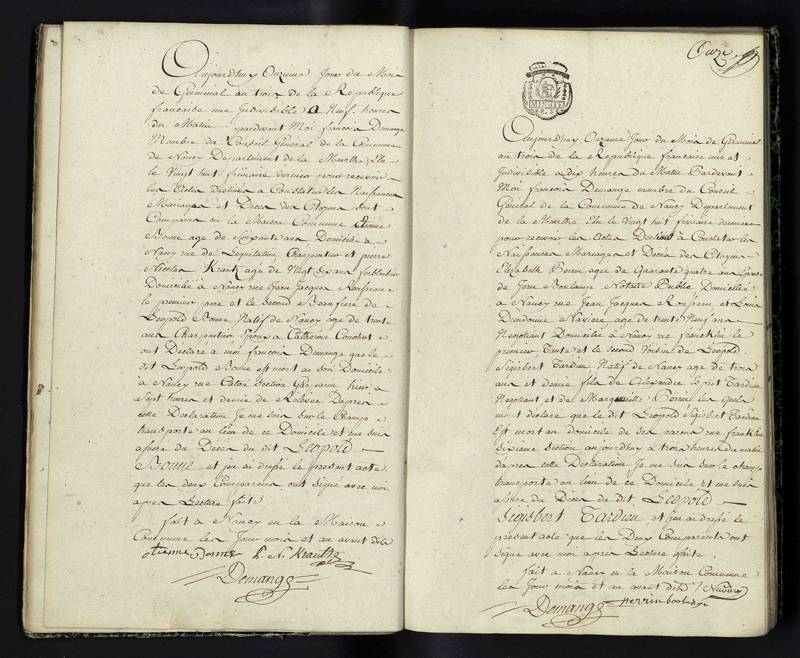 Aujourdhuy Onzieme Jour du Mois
de Germinal an trois de la Republique
francaise une Indivisible a Neuf heures
du Matin pardevant Moi francois Demange
Membre du Conseil General de la Commune
de Nancy Departement de la Meurthe Elu
le Vingt huit frimaire dernier pour recevoir
les Actes destines a Constater les Naissances
Mariages et Deces des Citoyens sont
Comparus en la Maison Commune Etienne
Bonne age de Soixante ans Domicilie a
Nancy rue de Legislation Charpentier et pierre
Nicolas Krantz age de Vingt six ans
Domicilie a Nancy rue Jean Jacques Rousseau
le premier pere et le Second Beaufrere de
Leopold Bonne Natif de Nancy age de trente
ans Charpentier Epoux a Catherine
ont Declare a moi francois Demange que le
dit Leopold Bonne est mort en son Domicile
a Nancy rue Caton Section hier a
Sept heures et demie de Relevee Dapres
cette Declaration Je me suis Sur le Champ
transporte au lieu de ce Domicile et me suis
assure du Deces du dit Leopold
Bonne et jen ai dresse le present acte
que les deux Comparans ont Signe avec moi
apres Lecture faite
fait a Nancy en la Maison
Commune les Jour mois et an avant dits
etienne Bonne P. N. Krantz
Demange
Onze
MINUTE
Aujourdhuy Onzieme Jour du Mois de Germinal
an trois de la Republique francaise une et
Indivisible a Dix heures du Matin Pardevant
Moi francois Demange membre du Conseil
General de la Commune de Nancy Departement
de la Meurthe Elu le Vingt huit frimaire dernier
pour recevoir les Actes Destines a Constater les
Naissances Mariages et Deces des Citoyens
Elizabeth agee de Quarante quatre ans Epouse
de Jean Boulange Notaire Public Domiciliee
a Nancy rue Jean Jacques Rousseau et Louis
Dieudonne age de trente Neuf ans
Negotiant Domicilie a Nancy rue franklin le
premier Tante et le Second Voisin de Leopold
Sigisbert Tardieu Natif de Nancy age de trois
ans et demie fils de Alexandre Esprit Tardieu
Negotiant et de Marguerite les quels
mont declare que le dit Leopold Sigisbert Tardieu
Est mort au domicile de ses parens rue franklin
Sixieme Section aujourdhuy a trois heures du matin
dapres cette Declaration Je me suis sur le champ
transporte au lieu de ce Domicile et me suis
assure du Deces du dit Leopold
Sigisbert Tardieu et jen ai dresse le
present acte que les Deux Comparants ont
Signe avec moi apres Lecture faite.
fait a Nancy en la Maison Commune
les Jour mois et an avant dits
Demange